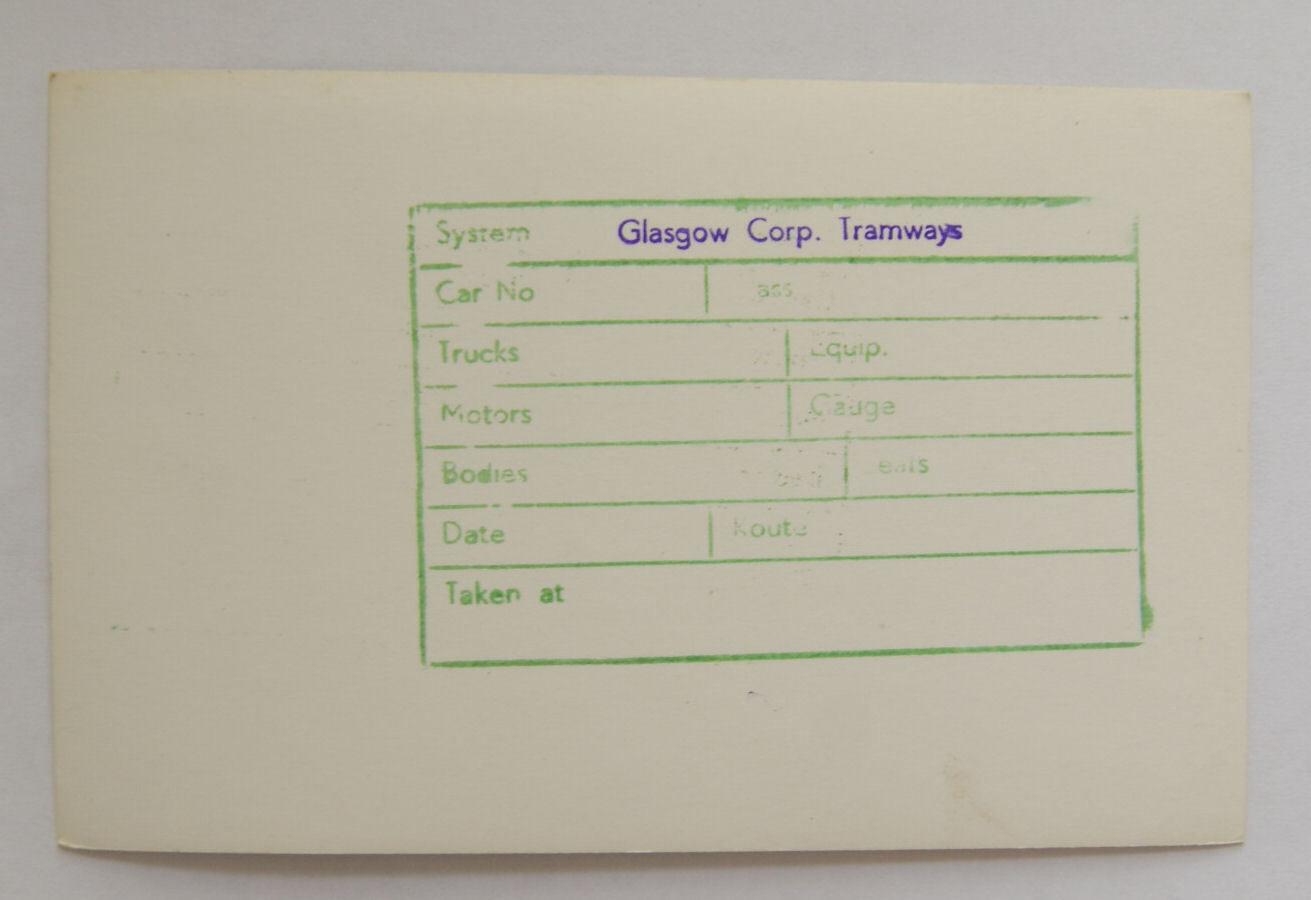 System Glasgow Corp. Tramways
Car No
Trucks Equip.
Motors Gauge
Bodies
Date Route
Taken at